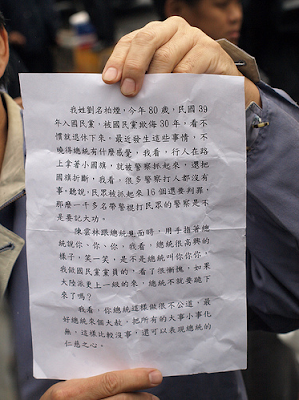 我姓劉名柏煙,今年80歲,民國39
年入國民黨,被國民黨欺侮30年,看不
慣就退休下來。最近發生這些事情,不
曉得總統有什麼感覺,我看,行人在路
上拿著小國旗,就被警察抓起來,還把
國旗折斷,我看,很多警察打人都沒有
事,聽說,民眾被抓起來16個還要判罪,
那麼一千多名帶警視打民眾的警察是不
是要記大功。
陳雲林跟總統見面時,用手指著總
統說你、你、你,我看,總統很高興的
樣子,笑一笑,是不是總統叫你你你,
我做國民黨黨員的,看了很慚愧,如果
大陸派更上一級的來,總統不就要跪下
來了嗎?
我看,你總統這樣做很不公道,最
好總統來個大赦,把所有的大事小事化
無,這樣比較沒事,還可以表現總統的
仁慈之心。